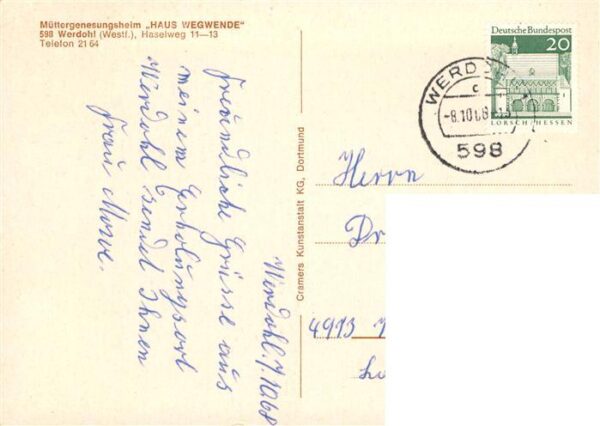 Müttergenesungsheim „HAUS WEGWENDE"
598 Werdohl (Westf.), Haselweg 11—13
Telefon 21 64
Werdohl, 7.10.68
Freundliche Grüsse aus
meinem Erholungsort
Werdohl sendet Ihnen
Frau
Cramers Kunstanstalt KG, Dortmund
Deutsche Bundespost
20
LORSCH/HESSEN
WERD
c
-8.10.68
598
Herrn
Dr
4973